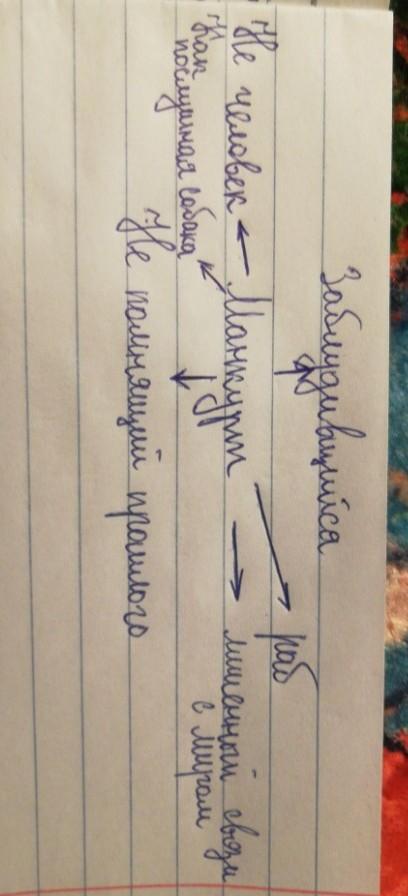 Заблудившийся
раб
Не человек ← Манкурт → лишенный связи
с миром
Как
послушная собака
Не помнящий прошлого